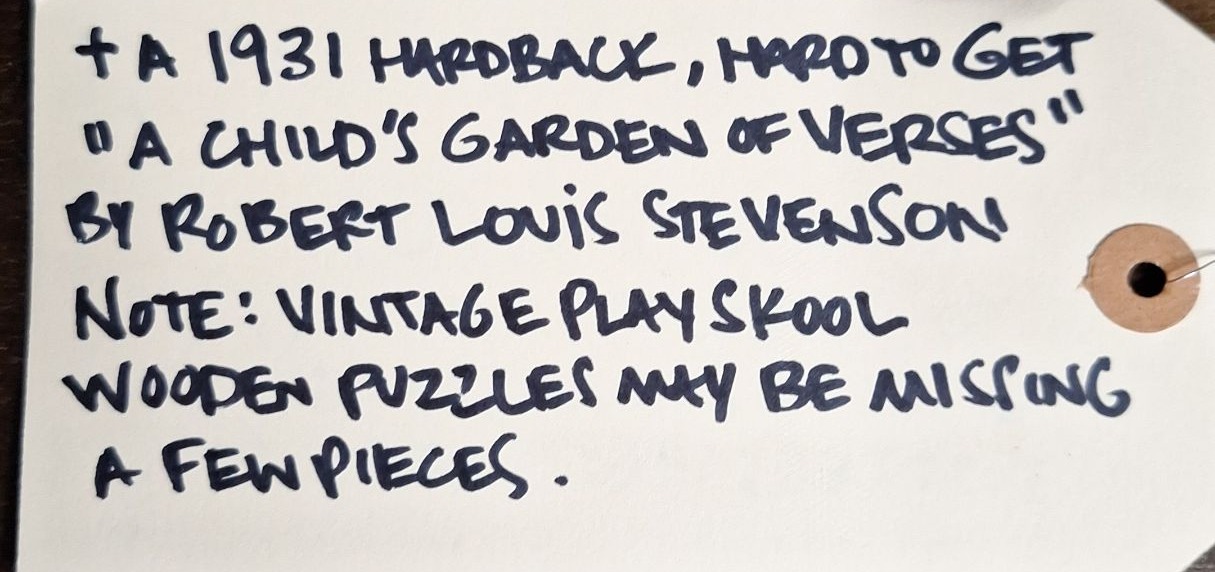 + A 1931 HARDBACK, HARD TO GET
"A CHILD'S GARDEN OF VERSES"
BY ROBERT LOUIS STEVENSON
NOTE: VINTAGE PLAYSKOOL
WOODEN PUZZLES MAY BE MISSING
A FEW PIECES.